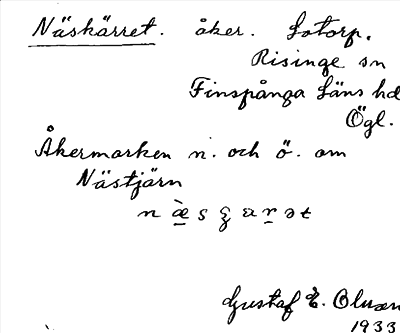 Näskärret. åker. Lotorp.
Risinge sn
Finspånga Läns hd
Ögl.
Åkermarken n. och ö. om
Nästjärn
Gustaf E. Olsson
1933